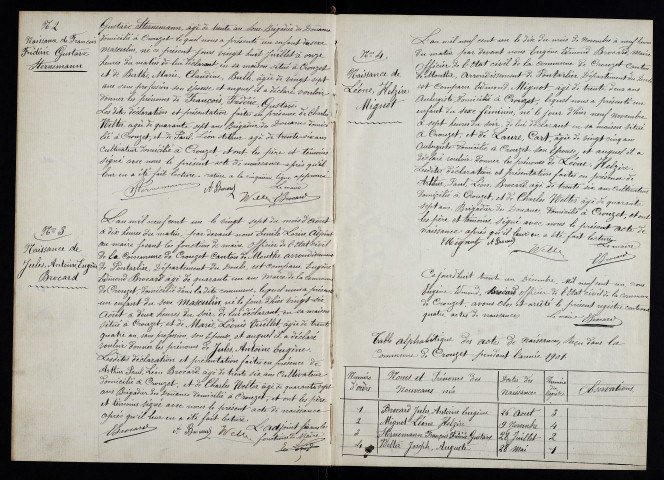 No 2
Naissance de François
Frédéric Gustave
Sternemann
Gustave Sternemann, âgé de trente ans, Brigadier des Douanes
domicilié à Crouzet, lequel nous a présenté un enfant du sexe
masculin, né le présent jour vingt huit juillet à onze
heures du matin de lui déclarant, en sa maison située à Crouzet
et de Berthe, Marie, Claudine, âgée de vingt sept
ans sans profession son épouse, et auquel il a déclaré vouloir
donner les prénoms de François, Frédéric, Gustave.
Les dites déclaration et présentation faites en présence de Charles
Welter âgé de quarante sept ans Brigadier des Douanes domicilié
à Crouzet, et de Paul, Léon Arthur, âgé de trente six ans
Cultivateur domicilié à Crouzet, et ont les père et témoins
signé avec nous le présent acte de naissance après qu'il
leur en a été fait lecture.
Sternemann
Welter
Le maire
Brocard
No 3
Naissance de
Jules, Antoine Eugène
Brocard
L'an mil neuf cent un le vingt sept du mois d'août
à dix heures du matin, par devant nous
au maire faisant les fonctions de maire Officier de l'état civil
de la Commune de Crouzet Canton de Mouthe arrondissement
de Pontarlier, Département du Doubs, est comparu Eugène
Edmond Brocard âgé de quarante ans Maire de la Commune
de Crouzet, domicilié dans la dite commune, lequel nous a présenté
un enfant du sexe Masculin, né le jour d'hier vingt six
Août à deux heures du soir, de lui déclarant, en sa maison
située à Crouzet, et de Marie Léonie Vuillet âgée de trente
quatre ans son épouse et auquel il a déclaré
vouloir donner les prénoms de Jules, Antoine Eugène.
Les dites déclaration et présentation faites en présence de
Arthur, Paul, Léon Brocard âgé de trente six ans Cultivateur
domicilié à Crouzet, et de Charles Welter âgé de quarante sept
ans Brigadier des Douanes domicilié à Crouzet, et ont les père
et témoins signé avec nous le présent acte de naissance
après qu'il leur en a été fait lecture.
Brocard
Welter
L'adjoint faisant les
fonctions de Maire
No 4
Naissance de
Léone, Helzire
Mignot
L'an mil neuf cent un le dix du mois de novembre à neuf heures
du matin par devant nous Eugène Edmond Brocard, Maire
Officier de l'Etat civil de la commune de Crouzet Canton
de Mouthe, Arrondissement de Pontarlier Département du Doubs
est comparu Mignot âgé de trente deux ans
Aubergiste domicilié à Crouzet, lequel nous a présenté un
enfant du sexe féminin, né le jour d'hier neuf novembre
à sept heures du de lui déclarant en sa maison située
à Crouzet, et de Laure Cart âgée de vingt cinq ans
Aubergiste domiciliée à Crouzet son épouse, et auquel il a
déclaré vouloir donner les prénoms de Léone, Helzire.
Lesdites déclaration et présentation faites en présence de
Arthur, Paul, Léon Brocard, âgé de trente six ans Cultivateur
domicilié à Crouzet, et de Charles Welter âgé de quarante
sept ans, Brigadier des Douanes domicilié à Crouzet, et ont
les père et témoins signé avec nous le présent acte de
naissance après qu'il leur en a été fait lecture.
Mignot
Welter
Le maire
Brocard
Cejourd'huit trente un décembre, mil neuf cent un nous
Eugène, Edmond, Brocard officier de l'état civil de la commune
de Crouzet, avons clos & arrêté le présent registre contenant
quatre actes de naissances.
Le maire Brocard
Table alphabétique des actes de naissances, reçus dans la
commune de Crouzet pendant l'année 1901
Numéros d'ordre
Noms et Prénoms des Nouveaux nés
Dates des naissances
Numéros du registre
Observations
1 Brocard Jules Antoine Eugène 26 août 3
2 Mignot Léone Helzire 9 Novembre 4
3 Sternemann François Frédéric Gustave 28 Juillet 2
4 Welter Joseph Auguste 28 Mai 1